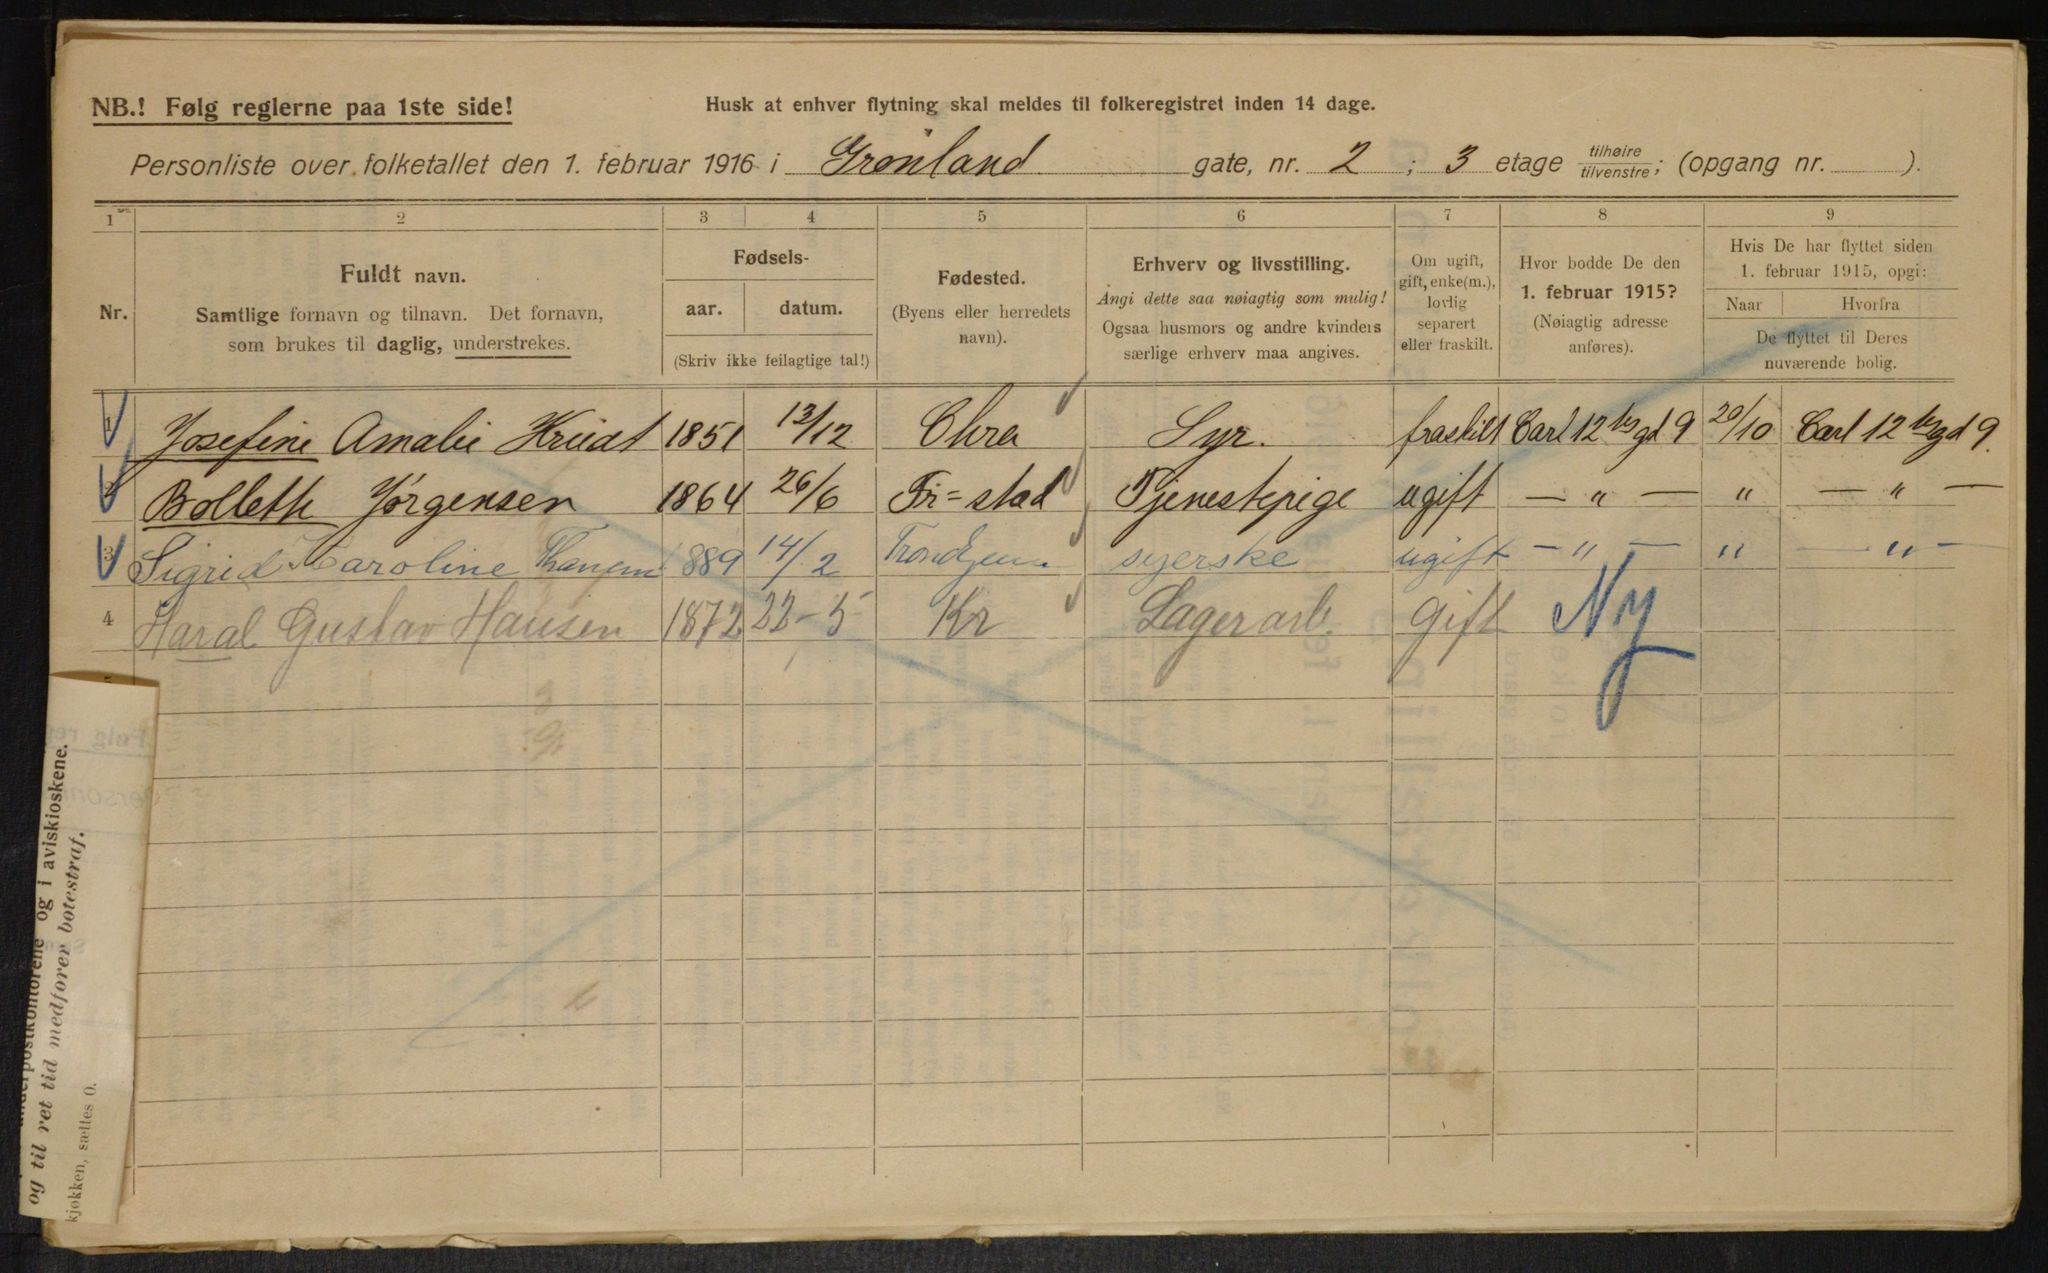 NB.! Følg reglerne paa 1ste side!
Husk at enhver flytning skal meldes til folkeregistret inden 14 dage.
Personliste over folketallet den 1. februar 1916 i Grønland gate, nr. 2 ; 3 etage tilhøire / tilvenstre ; (opgang nr. ).
1 2 3 4 5 6 7 8 9
Nr.
Fuldt navn.
Samtlige fornavn og tilnavn. Det fornavn,
som brukes til daglig, understrekes.
Fødsels-
aar. datum.
(Skriv ikke feilagtige tal!)
Fødested.
(Byens eller herredets
navn).
Erhverv og livsstilling.
Angi dette saa nøiagtig som mulig!
Ogsaa husmors og andre kvinders
særlige erhverv maa angives.
Om ugift,
gift, enke(m.),
lovlig
separert
eller fraskilt.
Hvor bodde De den
1. februar 1915?
(Nøiagtig adresse
anføres).
Hvis De har flyttet siden
1. februar 1915, opgi:
Naar Hvorfra
De flyttet til Deres
nuværende bolig.
1 Josefine Amalie 1851 13/12 Syr. fraskilt Carl 12 tes gd 9 20/10 Carl 12 tes gd 9.
2 Bolleth Jørgensen 1864 26/6 Fr=stad Tjenestepige ugift — " — " — " —
3 Sigrid Karoline 1889 14/2 syerske ugift — " — " — " —
4 Haral Gustav Hansen 1872 22-5 Kr Lagerarb. Gift Ny
5
underpostkontorene og i aviskioskene.
og til ret tid medfører bøtestraf.
kjøkken, sættes 0.